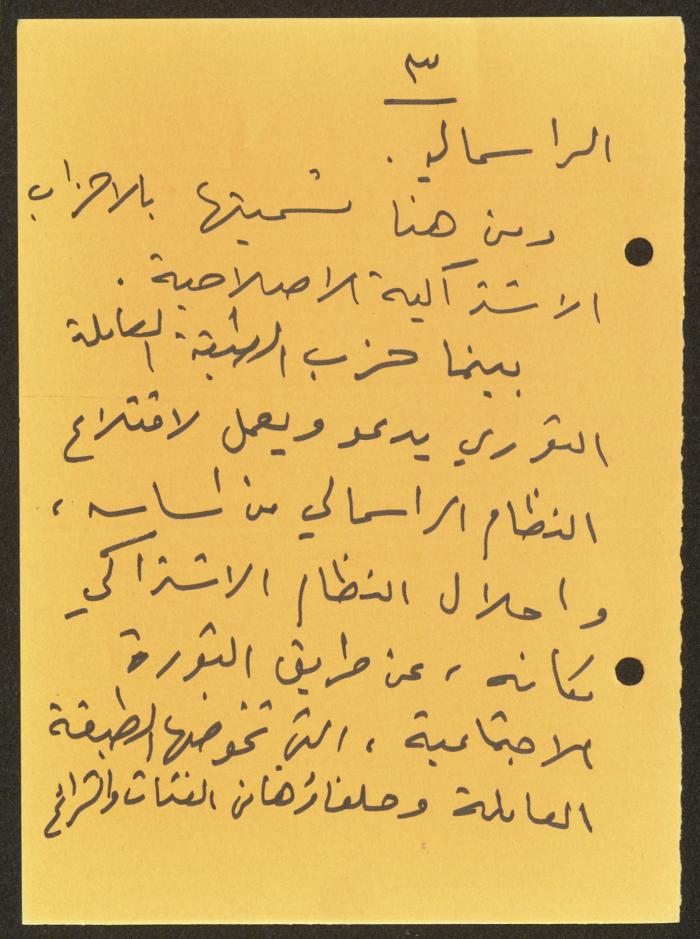 ٣
الراسمالي.
ومن هنا تسميتها بالاحزاب
الاشتراكية الاصلاحية.
بينما حزب الطبقة العاملة
الثوري يدعو ويعمل لاقتلاع
النظام الراسمالي من أساسه،
واحلال النظام الاشتراكي
مكانه، عن طريق الثورة
الاجتماعية، التي تخوضها الطبقة
العاملة وحلفاؤها من الفئات والشرائح